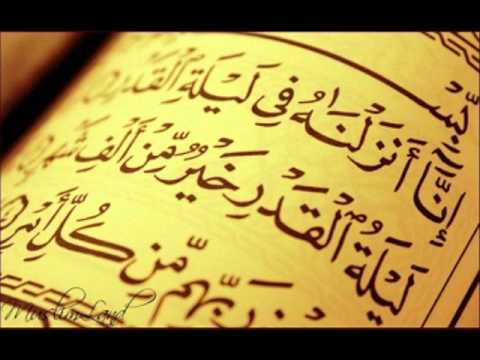 إِنَّا أَنزَلْنَاهُ فِي لَيْلَةِ الْقَدْرِ
لَيْلَةُ الْقَدْرِ خَيْرٌ مِّنْ أَلْفِ شَهْرٍ
رَبِّهِم مِّن كُلِّ
MuslimLand